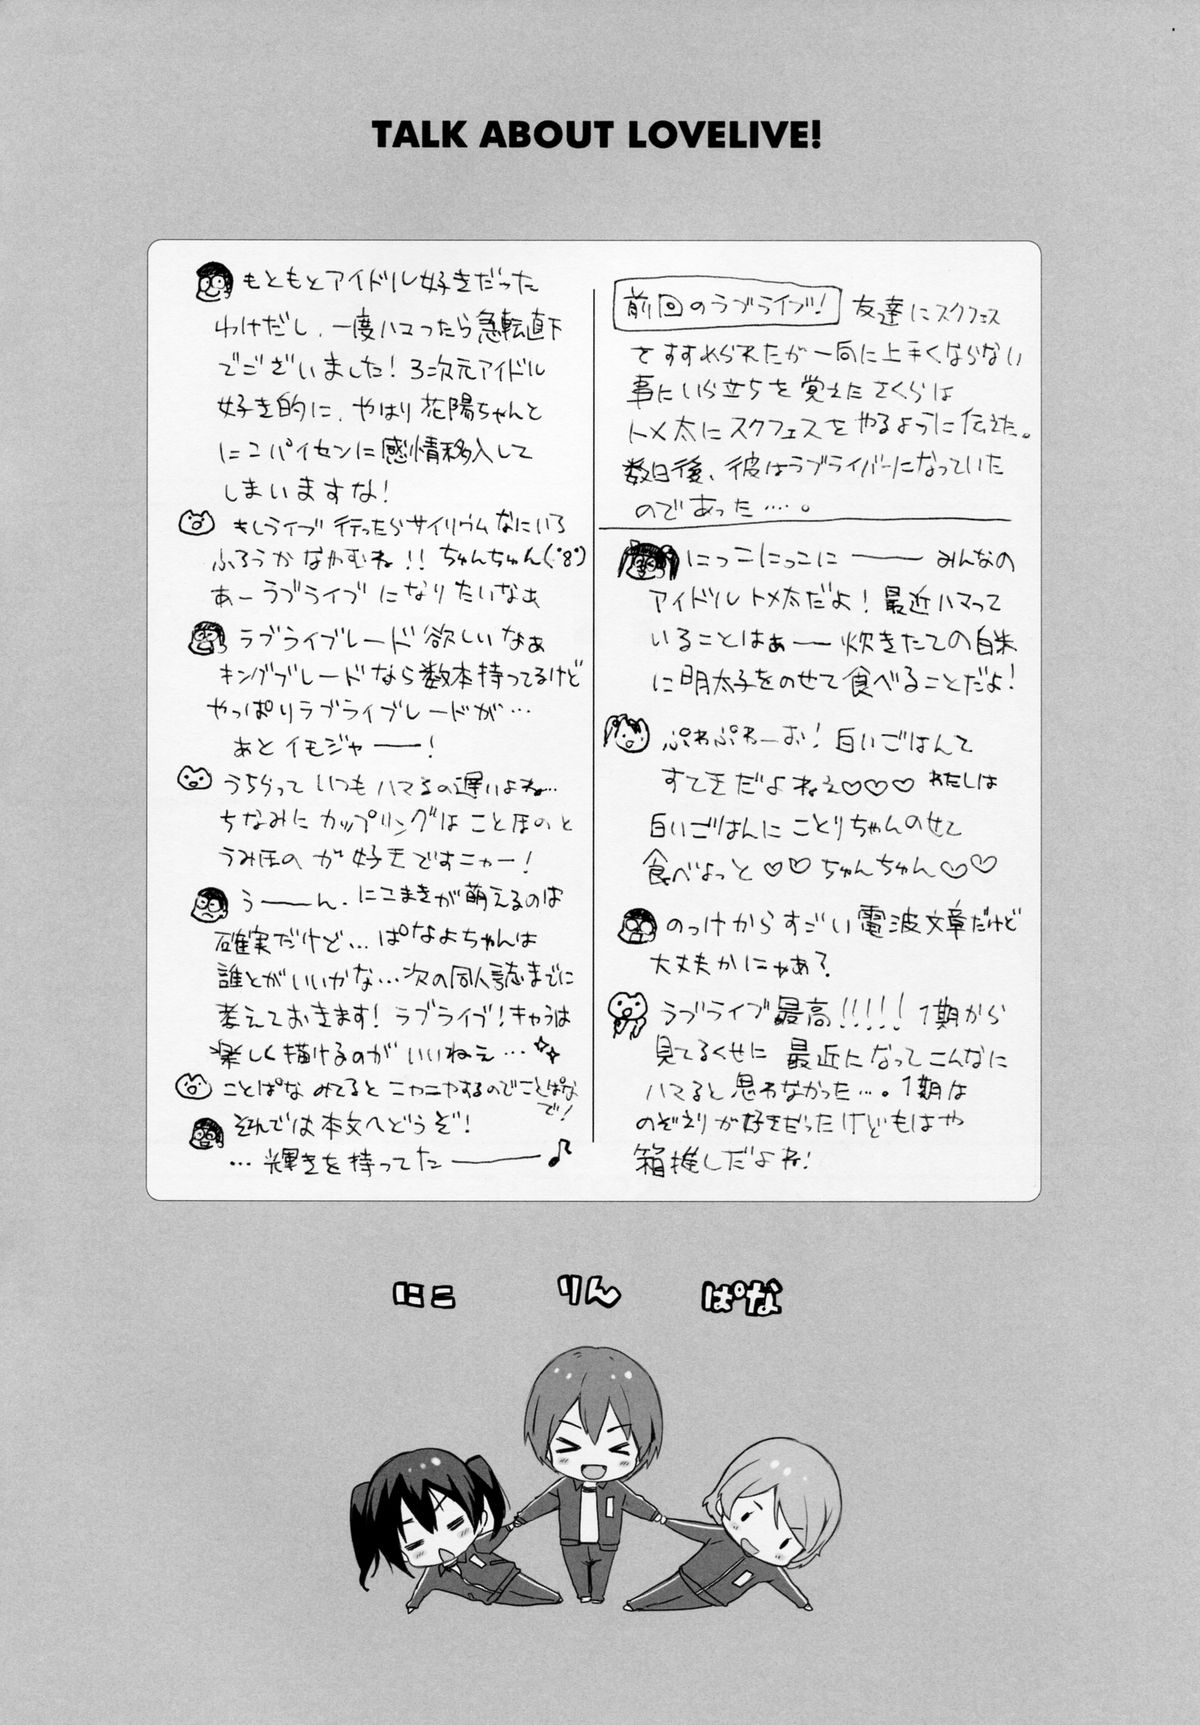 TALK ABOUT LOVELIVE!
前回のラブライブ! 友達にスクフェス
をすすめられたが一向に上手くならない
事にいら立ちを覚えたさくらは
トメ太にスクフェスをやるように伝えた。
数日後、彼はラブライバーになっていた
のであった…。
にっこにっこに―― みんなの
アイドルトメ太だよ!最近ハマって
いることはぁー 炊きたての白米
に明太子をのせて食べることだよ!
ぷわぷわーお!白いごはんて
すてきだよねぇ♡♡♡ わたしは
白いごはんにことりちゃんのせて
食べよっと♡♡ちゅんちゅん♡♡
のっけからすごい電波文章だけど
大丈夫かにゃあ?
ラブライブ最高!!!!!1期から
見てるくせに最近になってこんなに
ハマると思わなかった…。1期は
のぞえりが好きだったけどもはや
箱推しだよね!
もともとアイドル好きだった
わけだし、一度ハマったら急転直下
でございました!3次元アイドル
好き的に、やはり花陽ちゃんと
にこパイセンに感情移入して
しまいますな!
もしライブ行ったらサイリウムなにいろ
ふろうかなやむね!!ちゅんちゅん(・8・)
あーラブライブになりたいなぁ
ラブライブレード欲しいなぁ
キングブレードなら数本持ってるけど
やっぱりラブライブレードが…
あとイモジャー――!
うちらっていつもハマるの遅いよね…
ちなみにカップリングはことほのと
うみほのが好きですニャー!
う――ん、にこまきが萌えるのは
確実だけど…ぱなよちゃんは
誰とがいいかな…次の同人誌までに
考えておきます!ラブライブ!キャラは
楽しく描けるのがいいねぇ…✨
ことぱなみてるとニヤニヤするのでことぱな
で!
それでは本文へどうぞ!
…輝きを持ってた――♪
にこ りん ぱな